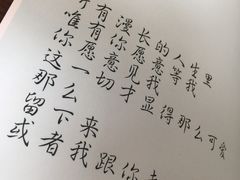 漫长的人生里
有你愿意等我
唯有愿意见我
你
这一切才显得那么可爱
那么
留下来
或者我跟你